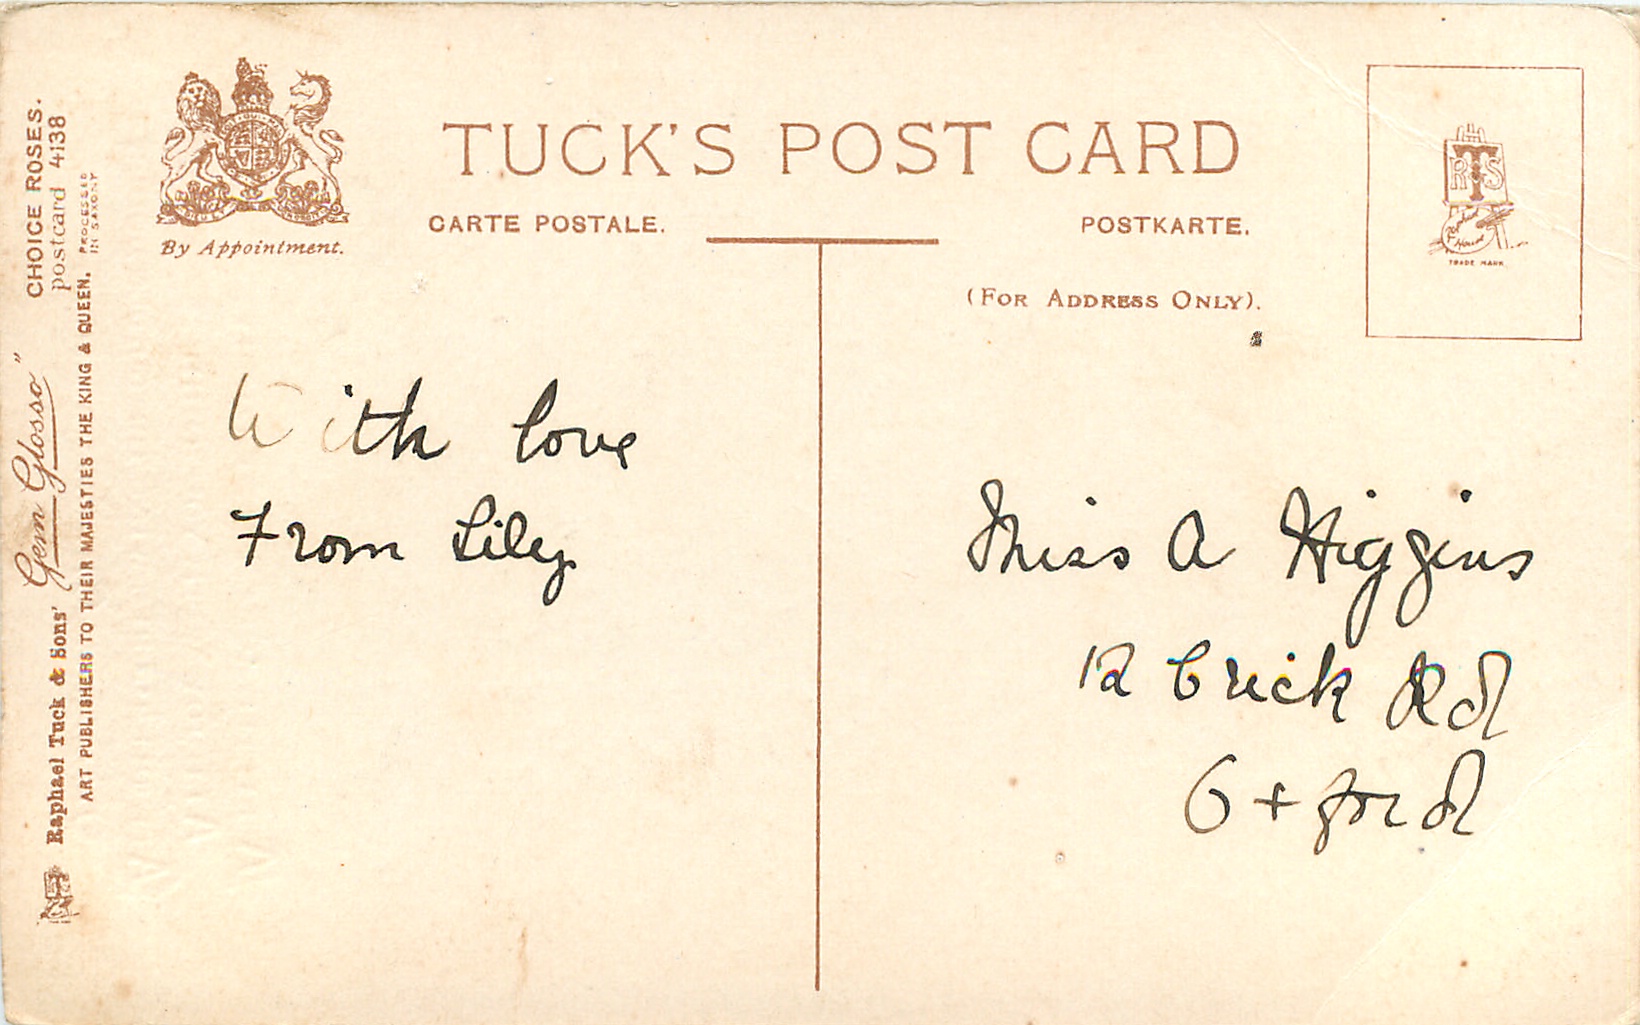 TUCK'S POST CARD
CARTE POSTALE.
POSTKARTE.
(FOR ADDRESS ONLY).
By Appointment.
RTS
TRADE MARK
With love
From Lily
Miss A Higgins
12 Crick Rd
Oxford
Raphael Tuck & Sons' "Gem Glosso"
CHOICE ROSES.
postcard 4138
ART PUBLISHERS TO THEIR MAJESTIES THE KING & QUEEN.
PROCESSED
IN SAXONY